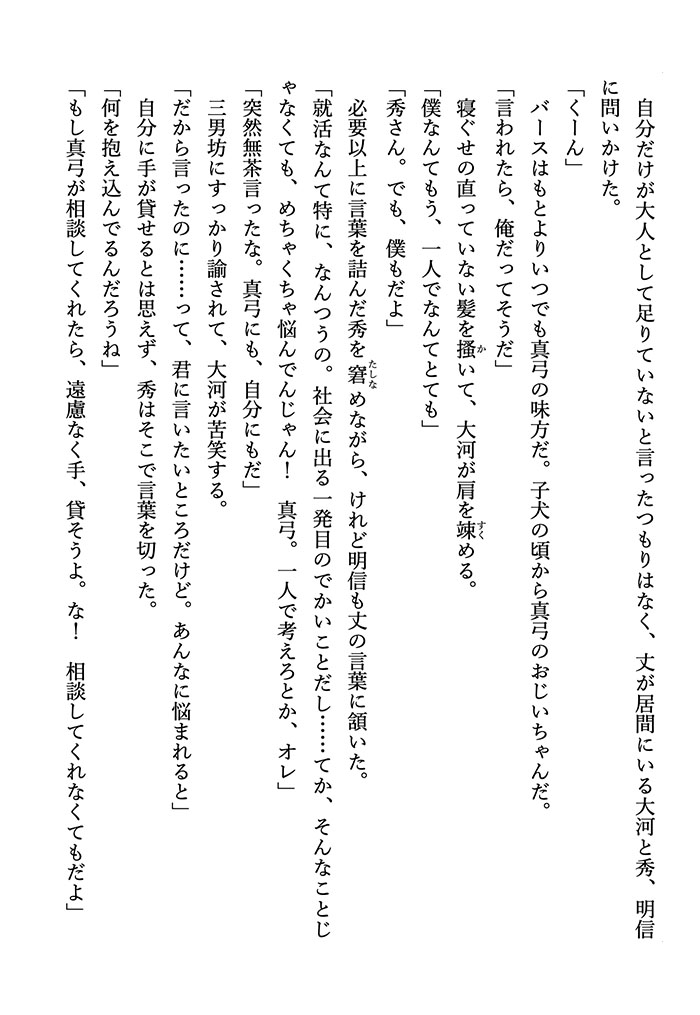 自分だけが大人として足りていないと言ったつもりはなく、丈が居間にいる大河と秀、明信
に問いかけた。
「くーん」
バースはもとよりいつでも真弓の味方だ。子犬の頃から真弓のおじいちゃんだ。
「言われたら、俺だってそうだ」
寝ぐせの直っていない髪を掻いて、大河が肩を竦める。
「僕なんてもう、一人でなんてとても」
「秀さん。でも、僕もだよ」
必要以上に言葉を詰んだ秀を窘めながら、けれど明信も丈の言葉に頷いた。
「就活なんて特に、なんつうの。社会に出る一発目のでかいことだし……てか、そんなことじ
ゃなくても、めちゃくちゃ悩んでんじゃん！　真弓。一人で考えろとか、オレ」
「突然無茶言ったな。真弓にも、自分にもだ」
三男坊にすっかり諭されて、大河が苦笑する。
「だから言ったのに……って、君に言いたいところだけど。あんなに悩まれると」
自分に手が貸せるとは思えず、秀はそこで言葉を切った。
「何を抱え込んでるんだろうね」
「もし真弓が相談してくれたら、遠慮なく手、貸そうよ。な！　相談してくれなくてもだよ」